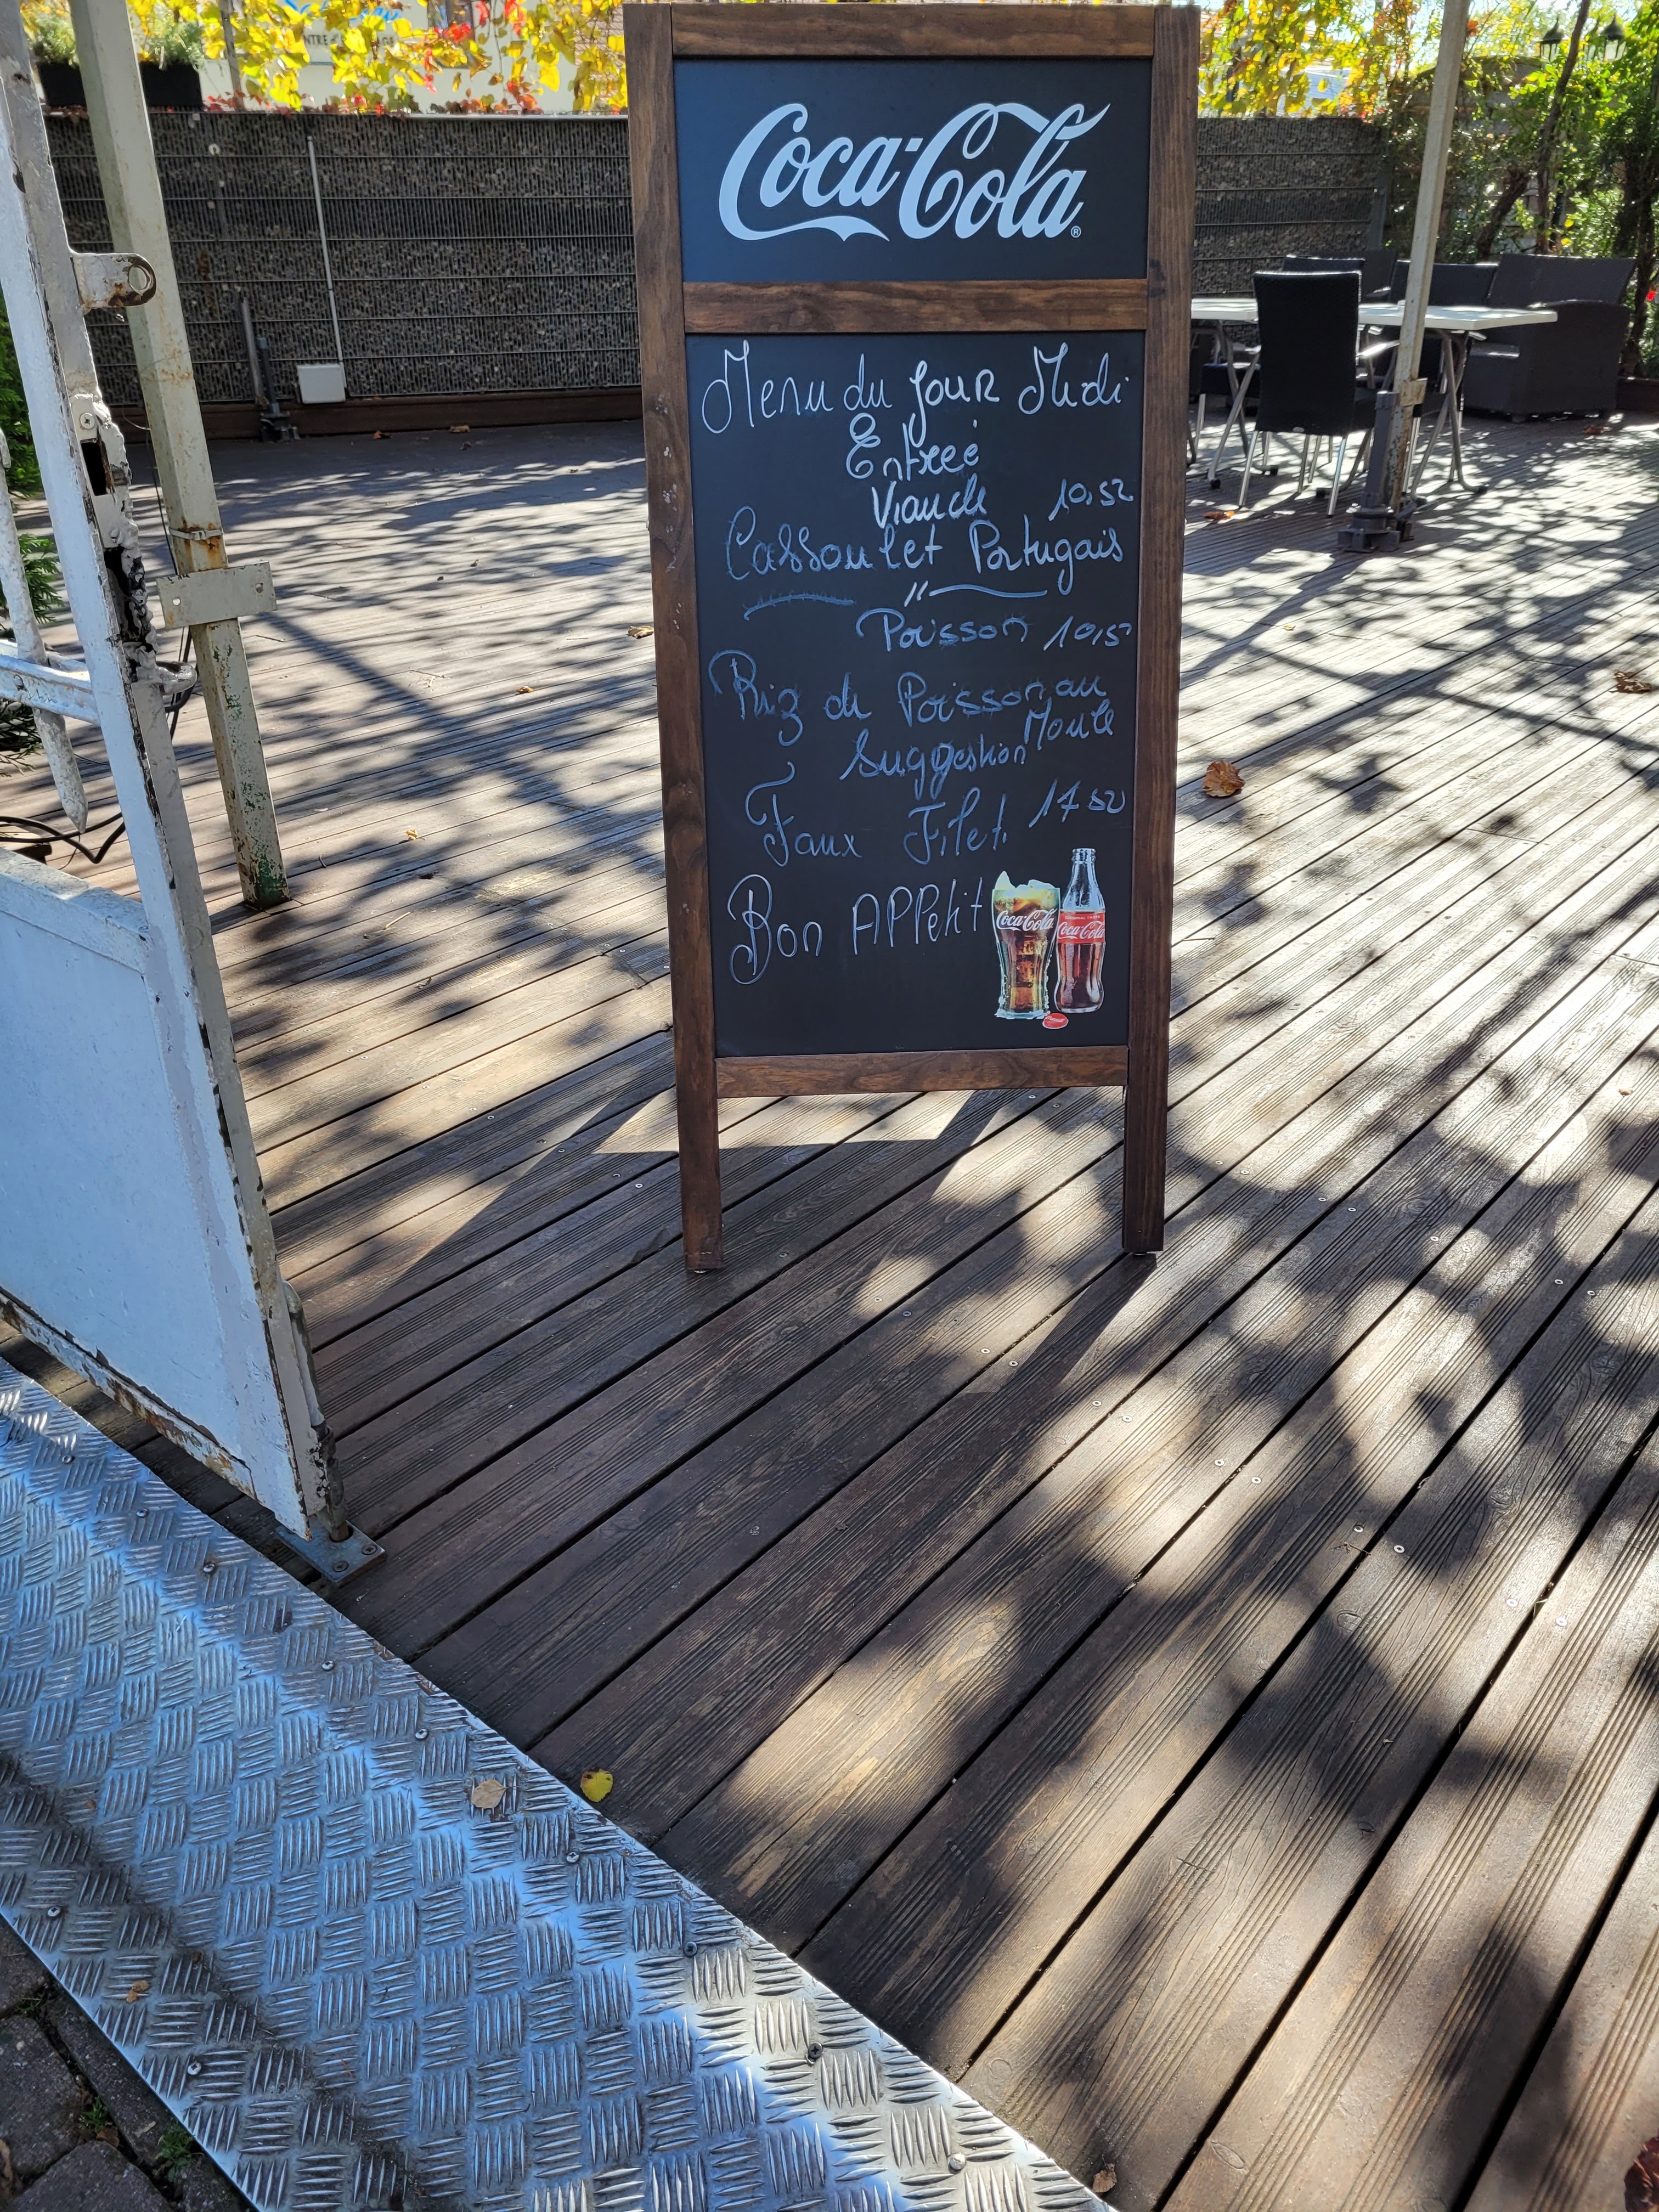 NTRE
Coca-Cola®
Menu du jour Midi
Entreé
Viande 10,50
Cassoulet Portugais
"
Poisson 10,50
Riz de Poisson au
Moule
Suggestion
Faux Filet 17 50
Bon APPetit
Coca-Cola
Coca-Cola